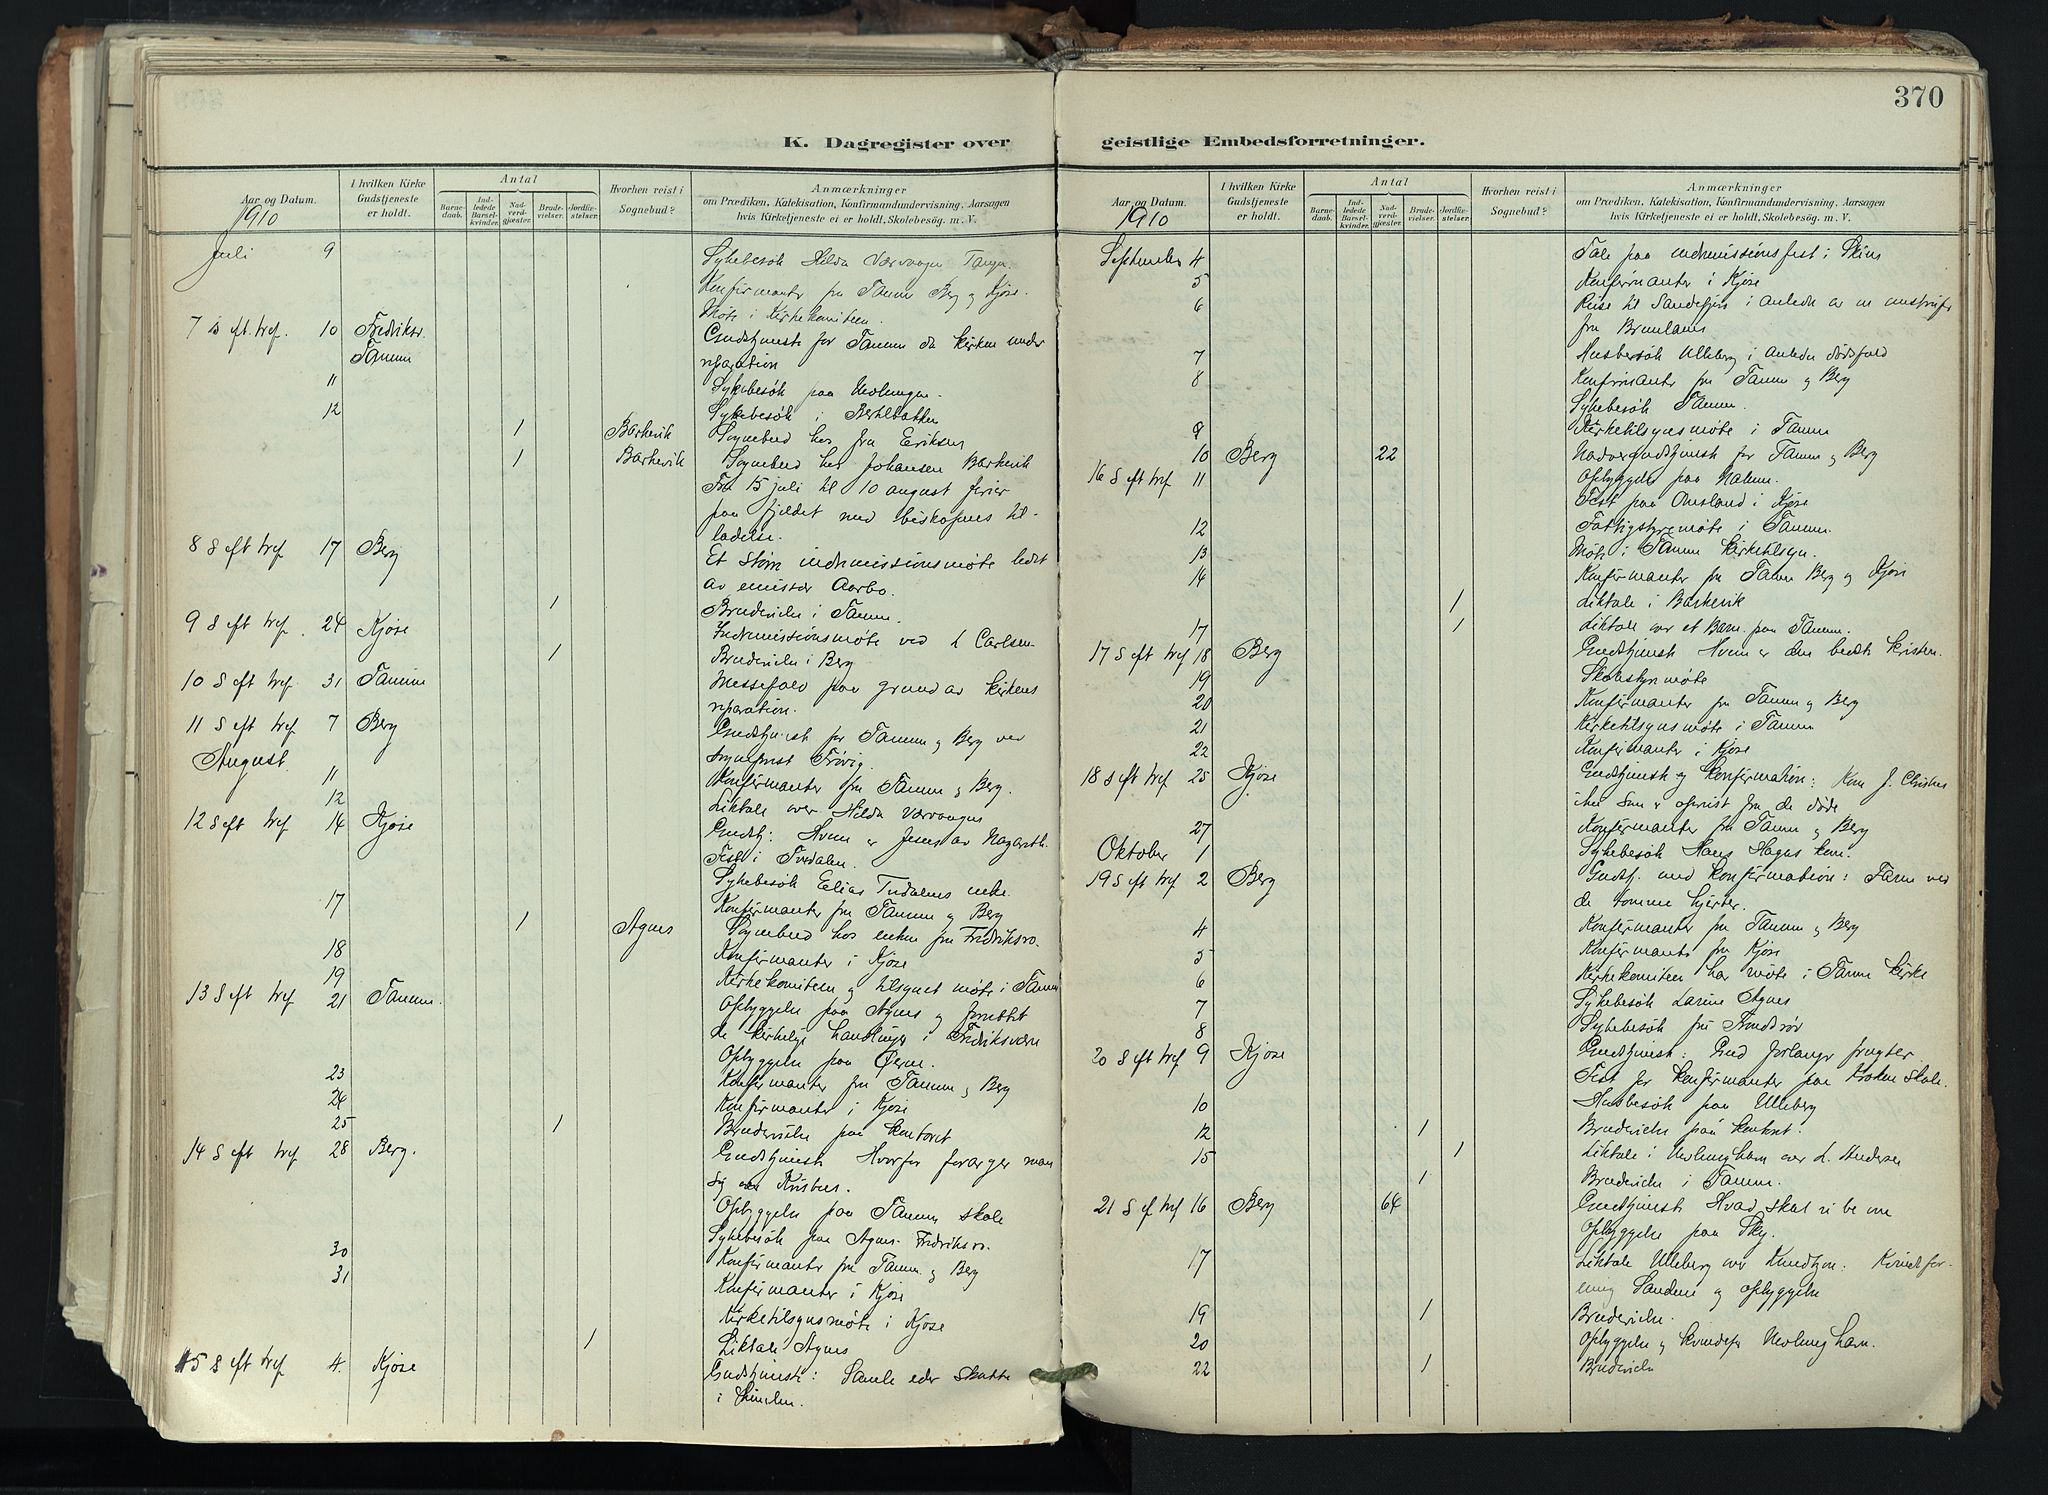 370
K. Dagregister over geistlige Embedsforretninger.
Aar og Datum.
I hvilken Kirke Gudstjeneste er holdt.
Antal
Barnedaab.
Indledede Barselkvinder.
Nadverdgjester.
Brudevielser.
Jordfæstelser.
Hvorhen reist i Sognebud?
Anmærkninger
om Prædiken, Katekisation, Konfirmandundervisning, Aarsagen
hvis Kirketjeneste ei er holdt, Skolebesög. m. V.
1910
Juli 9 Sykebesök Hilda Tangen
Konfirmanter fra Tanum Berg og Kjose.
Möte i Kirkekomiteen.
7 s eft tref. 10 Fredriksv. Gudstjeneste for Tanum da kirken under
Tanum reparation
11 Sykebesök paa Nevlungen.
12 Sykebesök i
1 Barkevik Sognebud hos fru Eriksen
1 Barkevik Sognebud hos Johansen Barkevik
Fra 15 juli til 10 august ferier
paa fjeldet med biskopens til-
ladelse.
8 S eft tref 17 Berg Et större indremissionsmöte ledet
av emissær Aarbo.
1 Brudevielse i Tanum.
9 S eft tref. 24 Kjose Indremissionsmöte ved L Carlsen
1 Brudevielse i Berg
10 S eft tref. 31 Tanum Messefald paa grund av kirkens
reparation.
11 S eft tref 7 Berg Gudstjenest for Tanum og Berg ved
August sogneprest
11 Konfirmanter fra Tanum og Berg.
12 Liktale over Hilda
12 S eft tref 14 Kjose Gudstj: Hvem er Jesus av Nazareth.
Fest i Tvedalen.
Sykebesök Elias Tvedalens enke.
17 Konfirmanter fra Tanum og Berg
1 Agnes Sognebud hos enken fra Fredriksv.
18 Konfirmanter i Kjose
19 Kirkekomiteen og tilsynet möte i Tanum
13 S eft tref 21 Tanum. Opbyggelse paa Agnes og forrettet
de kirkelige handlinger i Fredriksværn
Opbyggelse paa Øerne.
23 Konfirmanter fra Tanum og Berg
24 Konfirmanter i Kjose
25 1 Brudevielse paa kontoret
14 S eft tref 28 Berg. Gudstjeneste Hvorfor forarger man
sig over Kristus.
Opbyggelse paa Tanum skole
Sykebesök paa Agnes. Fredriksv.
30 Konfirmanter fra Tanum og Berg
31 Konfirmanter i Kjose
Kirketilsynsmöte i Kjose
1 Liktale Agnes
15 S eft tref 4. Kjose Gudstjeneste: Samle eder skatte
i himlen.
Aar og Datum.
I hvilken Kirke Gudstjeneste er holdt.
Antal
Barnedaab.
Indledede Barselkvinder.
Nadverdgjester.
Brudevielser.
Jordfæstelser.
Hvorhen reist i Sognebud?
Anmærkninger
om Prædiken, Katekisation, Konfirmandundervisning, Aarsagen
hvis Kirketjeneste ei er holdt, Skolebesög. m. V.
1910
September 4 Tale paa indremissionsfest i Skiens
5 Konfirmanter i Kjose
6 Reise til Sandefjord i anledn av en
fra Brunlanes
7 Husbesök Ulleberg i anledn dödsfald
8 Konfirmanter fra Tanum og Berg
Sykebesök Tanum.
9 Kirketilsynsmöte i Tanum
10 Berg 22 Nadvergudstjeneste for Tanum og Berg
16 S eft tref 11 Opbyggelse paa Nalum.
Fest paa i Kjose
12 Fattigstyremöte i Tanum.
13 Möte i Tanum Kirketilsyn.
14 Konfirmanter fra Tanum Berg og Kjose
1 Liktale i Barkevik
17 1 Liktale over et Barn paa Tanum.
17 S eft tref 18 Berg Gudstjeneste Hvem er den bedste kristen.
19 Skolestyremöte
20 Konfirmanter fra Tanum og Berg
21 Kirketilsynsmöte i Tanum
22 Konfirmanter i Kjose
18 S eft tref 25 Kjose Gudstjeneste og konfirmation: Kom J. Christus
i hu som er opreist fra de döde
27 Konfirmanter fra Tanum og Berg
Oktober 1 Sykebesök Hans Hagens kone.
19 S eft tref 2 Berg Gudstj. med konfirmation: Faren ved
de tomme hjerter.
4 Konfirmanter fra Tanum og Berg
5 Konfirmanter fra Kjose
6 Kirkekomiteen har möte i Tanum kirke
7 Sykebesök Larine Agnes
8 Sykebesök fru
20 S eft tref 9 Kjose Gudstjeneste: Gud forlanger frugter
Fest for konfirmanter paa skole.
10 Husbesök paa Ulleberg
12 1 Brudevielse paa kontoret.
15 1 Liktale i Nevlunghavn over L. Andersen
1 Brudevielse i Tanum.
21 S ef tref 16 Berg 64 Gudstjeneste Hvad skal vi be om
Opbyggelse paa Sky.
17 Liktale Ulleberg over Kvindefor-
ening Sandene og opbyggelse
19 1 Brudevielse.
20 Opbyggelse og kvindefor Nevlunghavn.
22 1 Brudevielse